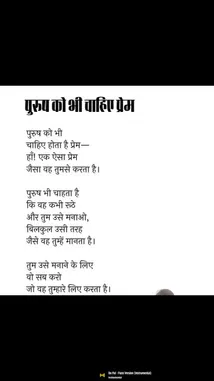 पुरुष को भी चाहिए प्रेम
पुरुष को भी
चाहिए होता है प्रेम—
हाँ! एक ऐसा प्रेम
जैसा वह तुमसे करता है।
पुरुष भी चाहता है
कि वह कभी रूठे
और तुम उसे मनाओ,
बिलकुल उसी तरह
जैसे वह तुम्हें मानता है।
तुम उसे मनाने के लिए
वो सब करो
जो वह तुम्हारे लिए करता है।